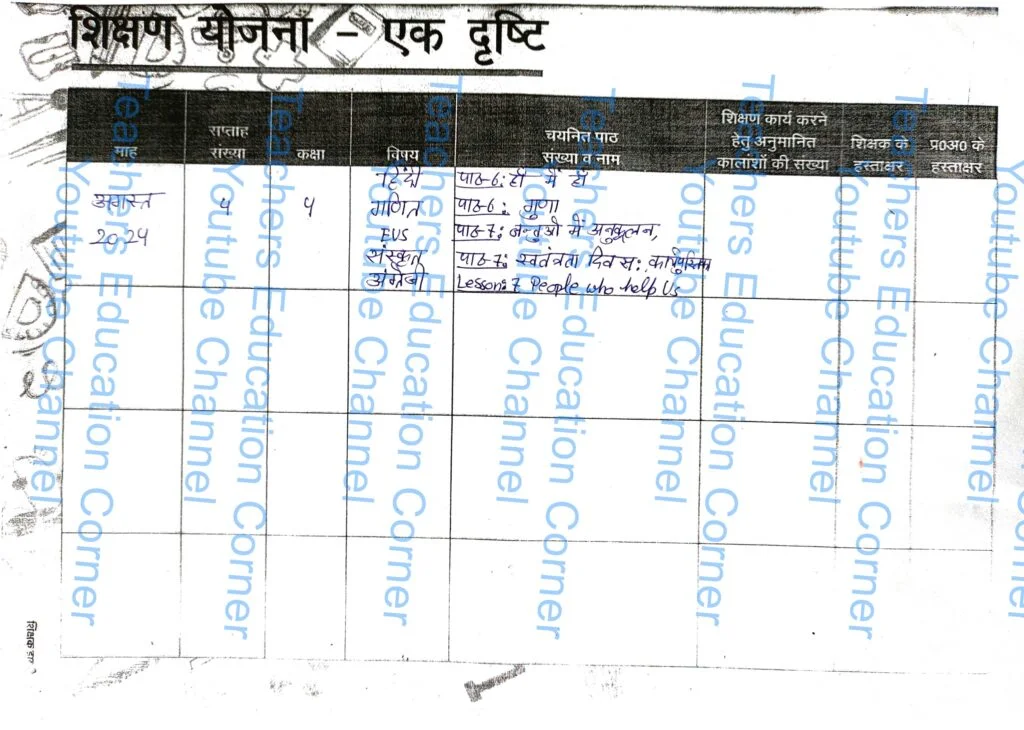 शिक्षण योजना – एक दृष्टि
माह
सप्ताह
संख्या
कक्षा
विषय
चयनित पाठ
संख्या व नाम
शिक्षण कार्य करने
हेतु अनुमानित
कालांशों की संख्या
शिक्षक के
हस्ताक्षर
प्र0अ0 के
हस्ताक्षर
अगस्त
2024
4
4
हिंदी
पाठ-6: हाँ में हाँ
गणित
पाठ-6: गुणा
EVS
पाठ-7: जन्तुओं में अनुकूलन,
संस्कृत
पाठ-7: स्वतंत्रता दिवस:
अंग्रेजी
Lesson: 7 People who help Us
Teachers Education Corner
Youtube Channel
Teachers Education Corner
Youtube Channel
Teachers Education Corner
Youtube Channel
Teachers Education Corner
Youtube Channel
Teachers Education Corner
Youtube Channel
Teachers Education Corner
Youtube Channel
Youtube Channel